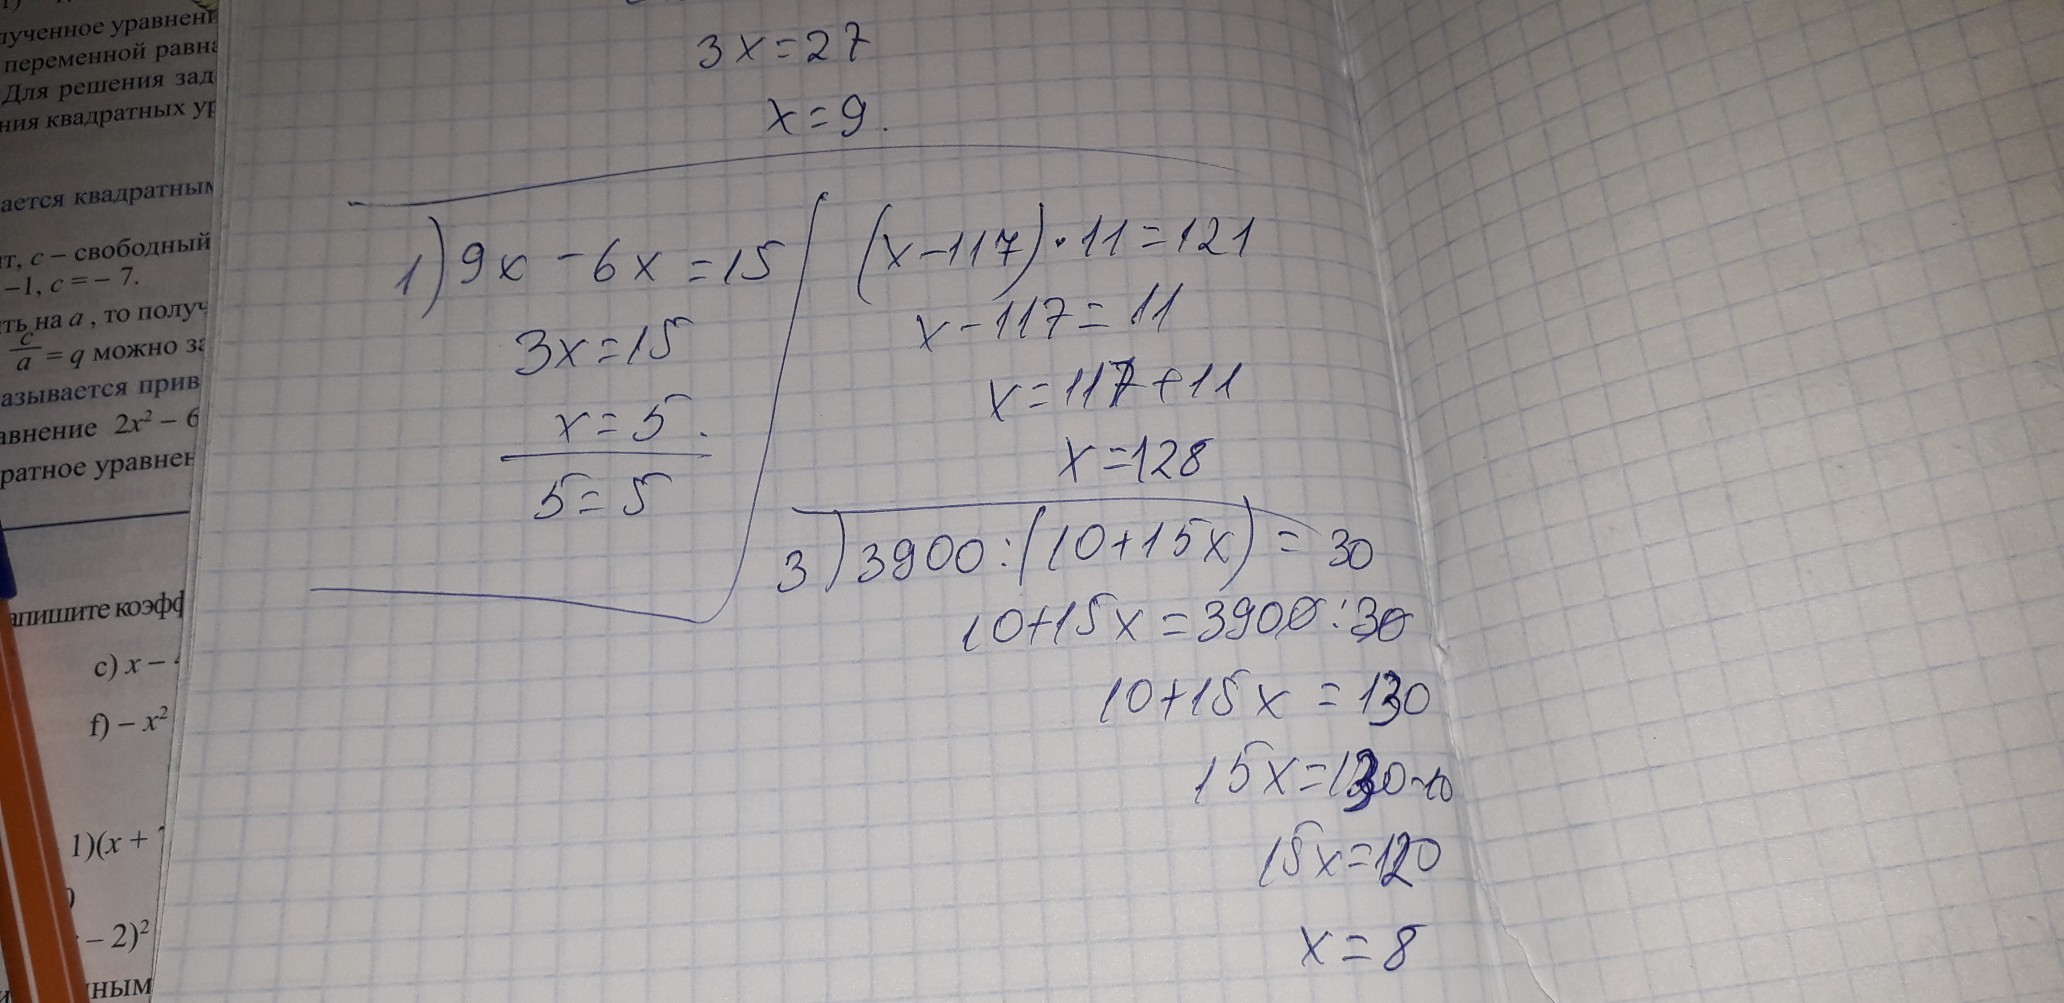 лученное уравнени
переменной равна
Для решения зад
ния квадратных ур
ается квадратным
т, c – свободный
–1, c = – 7.
ть на a , то получ
c/a = q можно за
азывается прив
авнение 2x² – 6
ратное уравнен
апишите коэфф
c) x –
f) – x²
1)(x +
– 2)²
ным
3x=27
x=9.
1) 9x - 6x = 15
3x=15
x=5.
5=5
(x-117)·11=121
x-117=11
x=117+11
x=128
3) 3900:(10+15x) = 30
10+15x=3900:30
10+15x=130
15x=130-10
15x=120
x=8